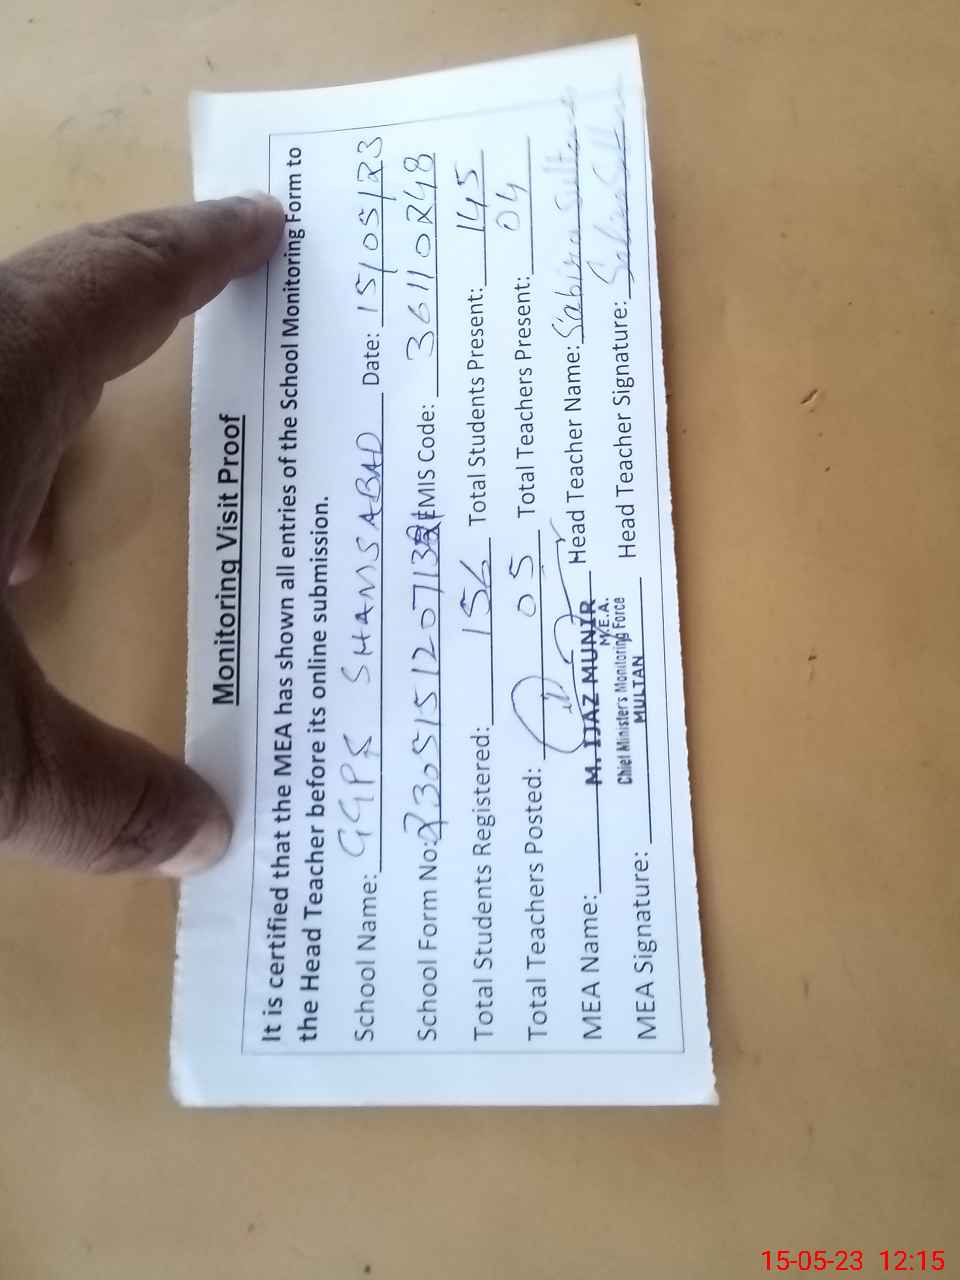 Monitoring Visit Proof
It is certified that the MEA has shown all entries of the School Monitoring Form to
the Head Teacher before its online submission.
School Name: GGPS SHAMSABAD Date: 15/05/23
School Form No: EMIS Code: 36110248
Total Students Registered: 156 Total Students Present: 145
Total Teachers Posted: 05 Total Teachers Present: 04
MEA Name: M. IJAZ MUNIR Head Teacher Name: Sabira Sultana
M.E.A.
Chief Minister's Monitoring Force
MULTAN
MEA Signature: Head Teacher Signature:
15-05-23 12:15